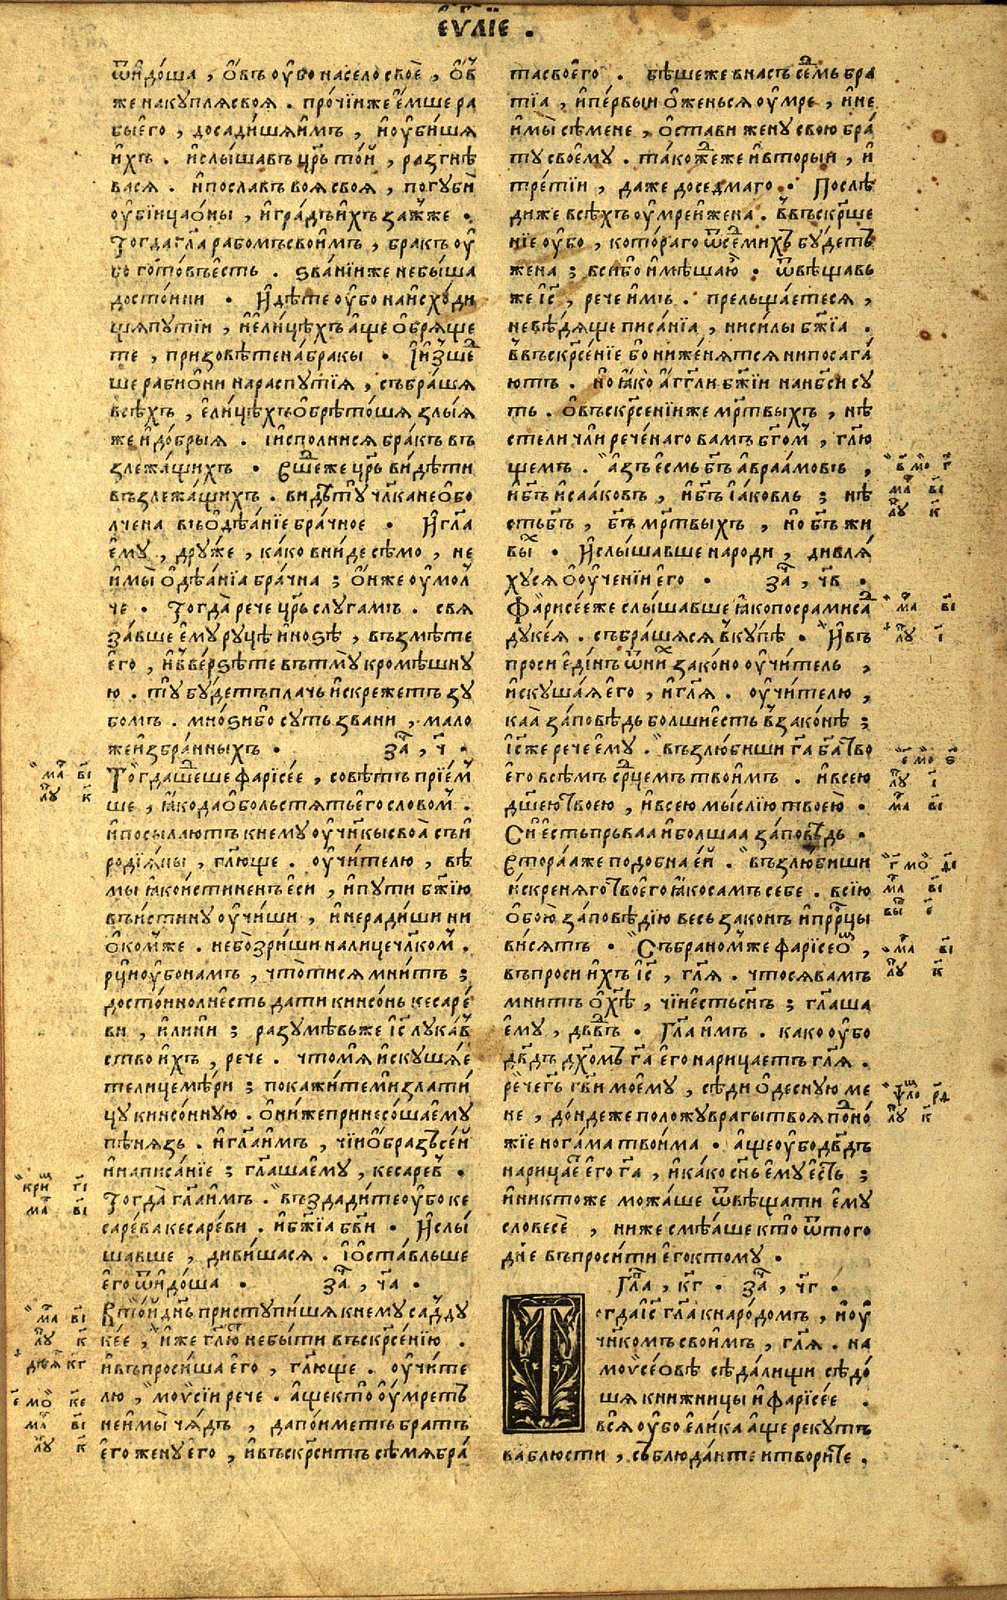 єѵ҃лїе .
ѿидо́ша , о́въ ѹ҆́бо на село̀ своѐ , о́в
же на кꙋплѧ своѧ̀ . про́чїи же є҆́мше ра
бы є҆го̀ , досади́шѧ и҆̀мъ , и҆ ѹ҆би́шѧ
и҆́хъ . и҆ слы́шавъ цр҃ь то́й , разгнѣ
васѧ . и҆ посла́въ воѧ своѧ̀ , погꙋбѝ
ѹ҆бїи́ца о҆́ны , и҆ гра́дъ и҆́хъ зажже .
Тогда гл҃а рабо́мъ свои҆́мъ , бра́къ ѹ҆́
бо гото́въ є҆́сть . ѕва́нїи же не бы́ша
досто́ини . И҆дѣ́те ѹ҆́бо на и҆схо́ди
ща пꙋ́тїи , и҆ є҆ли́цѣхъ а҆́ще о҆брѧ́ще
те , призовѣ́те на́ бракы . І҆ и҆зше́д
ше раби о҆ни на распꙋ́тїѧ , събра́шѧ
всѣ́хъ , є҆ли́цѣхъ о҆брѣто́шѧ злы́ѧ
же и҆ до́брыѧ . і҆ испо́лнисѧ бра́къ въ
злежа́щихъ . Вше́д же цр҃ь ви́дѣти
възлежа́щихъ . ви́дѣ тꙋ̀ чл҃ка не о҆бо
лче́на въ о҆дѣѧ́нїе бра́чное . И҆ гл҃а
є҆мꙋ , дрꙋ́же , ка́ко вни́де сѣ́мо , не
и҆мы̀ о҆дѣѧ́нїа бра́чна ; о҆́н же ѹ҆мол
че . Тогда̀ рече цр҃ь слꙋга́мъ . свѧ
за́вше є҆мꙋ рꙋ́цѣ и҆ но́ѕѣ , възмѣ́те
є҆го̀ , и҆ вве́рѕѣте въ тмꙋ кромѣ́шнꙋ
ю . тꙋ̀ бꙋ́детъ пла́чь и҆ скре́жетъ зꙋ
бо́мъ . мно́ѕи бо сꙋть зва́ни , ма́ло
же и҆збра́нныхъ . за҃ , ч҃ .
Тогда̀ ше́дше фарїсе́е , совѣ́тъ прїе́м
ше , ꙗ҆́ко да о҆больстѧ́ть є҆го сло́вом .
и҆ посыла́ютъ к нему ѹ҆ч҃нкы своѧ̀ съ и҆
родїѧ́ны , гл҃юще . ѹ҆чи́телю , вѣ
мы ꙗ҆́ко и҆́стиненъ є҆сѝ , и҆ пꙋти бж҃їю
въ и҆́стинꙋ ѹ҆чи́ши , и҆ неради́ши ни
о҆ ком же . не бо́ зри́ши на лице чл҃ком .
рцы̀ ѹ҆́бо намъ , что́ ти сѧ мни́тъ ;
досто́ино ли є҆́сть дати кинсонь кесаре́
ви , и҆лини ; разꙋмѣ́въ же і҆с҃ лꙋка́в
ство и҆́хъ , рече . что мѧ̀ и҆скꙋша́е
те лицемѣ́ри ; покажи́те мѝ злати́
цꙋ кинсо́ннꙋю . о҆ни же принесо́ша є҆мꙋ
пѣ́нѧзь . и҆ гл҃а и҆́мъ , чїи о҆́браз се́й
и҆ написа́нїе ; гл҃аша є҆мꙋ , кесаре́в .
Тогда̀ гл҃а и҆́мъ . въздади́те ѹ҆́бо ке
саре́ва ке́сареви . и҆ бж҃їа бг҃ви . И҆ слы́
шавше , диви́шасѧ . і҆ о҆ста́вльше
є҆го ѿидо́ша . за҃ , ч҃а .
В то́й дн҃ь пристꙋпи́шѧ к немꙋ садꙋ
ке́е , и҆́же гл҃ют не бы́ти въскр҃се́нїю .
и҆ въпроси́ша є҆го , гл҃юще . ѹ҆чи́те
лю , моѵси́и рече . а҆́ще кто ѹ҆́мретъ
не и҆мы́ чѧ́дъ , да по́иметъ бра́тъ
є҆го женꙋ є҆го , и҆ въскр҃си́тъ сѣ́мѧ бра́
та своего . бѣ́ше же в насъ се́дмь бра
тїа , и҆ пе́рвыи о҆же́ньсѧ ѹ҆́мре , и҆ не
и҆мы̀ сѣ́мене , о҆ста́ви женꙋ свою̀ бра́
тꙋ своемꙋ̀ . та́кожде же и҆ вторы́й , и҆
тре́тїи , да́же до седмаго . Послѣ
ди же всѣ́хъ ѹ҆́мре и҆ жена . в въскр҃се
нїе ѹ҆́бо , кото́раго ѿ седми́хъ бꙋ́детъ
жена ; вси́ бо и҆мѣ́ша ю . ѿвѣща́въ
же і҆с҃ , рече и҆́мъ . прельща́етесѧ ,
не вѣ́дѧще писа́нїа , ни си́лы бж҃їа .
в въскр҃се́нїе бо ни же́нѧтсѧ ни посѧга́
ютъ . но̀ ꙗ҆́ко а҆́гг҃ли бж҃їи на нб҃си сꙋ
ть . о҆ въскр҃се́нїи же мр҃твыхъ , нѣ́
сте ли чли́ рече́наго ва́мъ бг҃ом , гл҃ю
щемъ . а҆́зъ є҆́смь бг҃ъ а҆враа́мовъ ,
и҆ бг҃ъ и҆саа́ковъ , и҆ бг҃ъ і҆а́ковль ; нѣ́
сть бг҃ъ , бг҃ъ мр҃твыхъ , но̀ бг҃ъ жи
вы́х . И҆ слы́шавше наро́ди , дивлѧ́
хꙋсѧ о҆ ѹ҆че́нїи є҆го . за҃ , ч҃в .
Фарисе́е же слы́шавше ꙗ҆́ко посрами са
дꙋке́ѧ . събра́шѧсѧ вкꙋ́пѣ . И҆ въ
проси є҆ди́нъ ѿ ни́х зако́но ѹ҆чи́тель ,
и҆скꙋша́ѧ є҆го , и҆ гл҃ѧ . ѹ҆чи́телю ,
каѧ̀ за́повѣдь бо́лши є҆сть в зако́нѣ ;
і҆с҃ же рече є҆мꙋ . възлю́биши га҃ бг҃а тво
є҆го всѣ́мъ ср҃дцемъ твои́мъ . и҆ всею
дш҃ею твоею , и҆ все́ю мы́слїю твоею .
Си є҆сть пръваа и҆ бо́лшаа за́повѣдь .
Втора́а же подобна е҆́й . възлю́биши
и҆скрѣ́нѧго твоего ꙗ҆́ко са́мъ себе . в сїю
о҆бою за́повѣдїю весь зако́нъ и҆ прⷪ҇рцы
висѧ́тъ . Събра́номже фарїсе́ом ,
въпроси и҆́хъ і҆с҃ , гл҃ѧ . что сѧ ва́мъ
мни́тъ о҆ хс҃ѣ , чїи́ є҆́сть сн҃ъ ; гл҃аша
є҆мꙋ , дв҃двъ . Гл҃а и҆́мъ . како ѹ҆бо
дв҃дъ дх҃омъ га҃ є҆го нарица́етъ гл҃ѧ .
рече гь҃ гв҃и моемꙋ , сѣди о҆деснꙋю ме
не , до́ндеже положꙋ врагы твоѧ по́дно
жїе нога́ма твои́ма . а҆ще ѹ҆бо дв҃дъ
нарица́е є҆го га҃ , и҆ ка́ко сн҃ъ є҆мꙋ є҆сть ;
и҆ никто́же можа́ше ѿвѣща́ти є҆мꙋ
словесѐ , ниже смѣѧ́ше кто ѿ того
дн҃е въпроси́ти є҆го ктомꙋ .
Гла҃ , к҃г . за҃ , ч҃г .
Тогда і҆с҃ гл҃а к наро́домъ , и҆ ѹ
ч҃нкомъ свои́мъ , гл҃ѧ . на
моѵсе́овѣ сѣда́лищи сѣдо́
шѧ кни́жницы и҆ фарїсе́е .
всѧ ѹ҆́бо є҆ли́ка а҆́ще рекꙋтъ
ва́ блюсти , съблюда́ите и твори́те ,